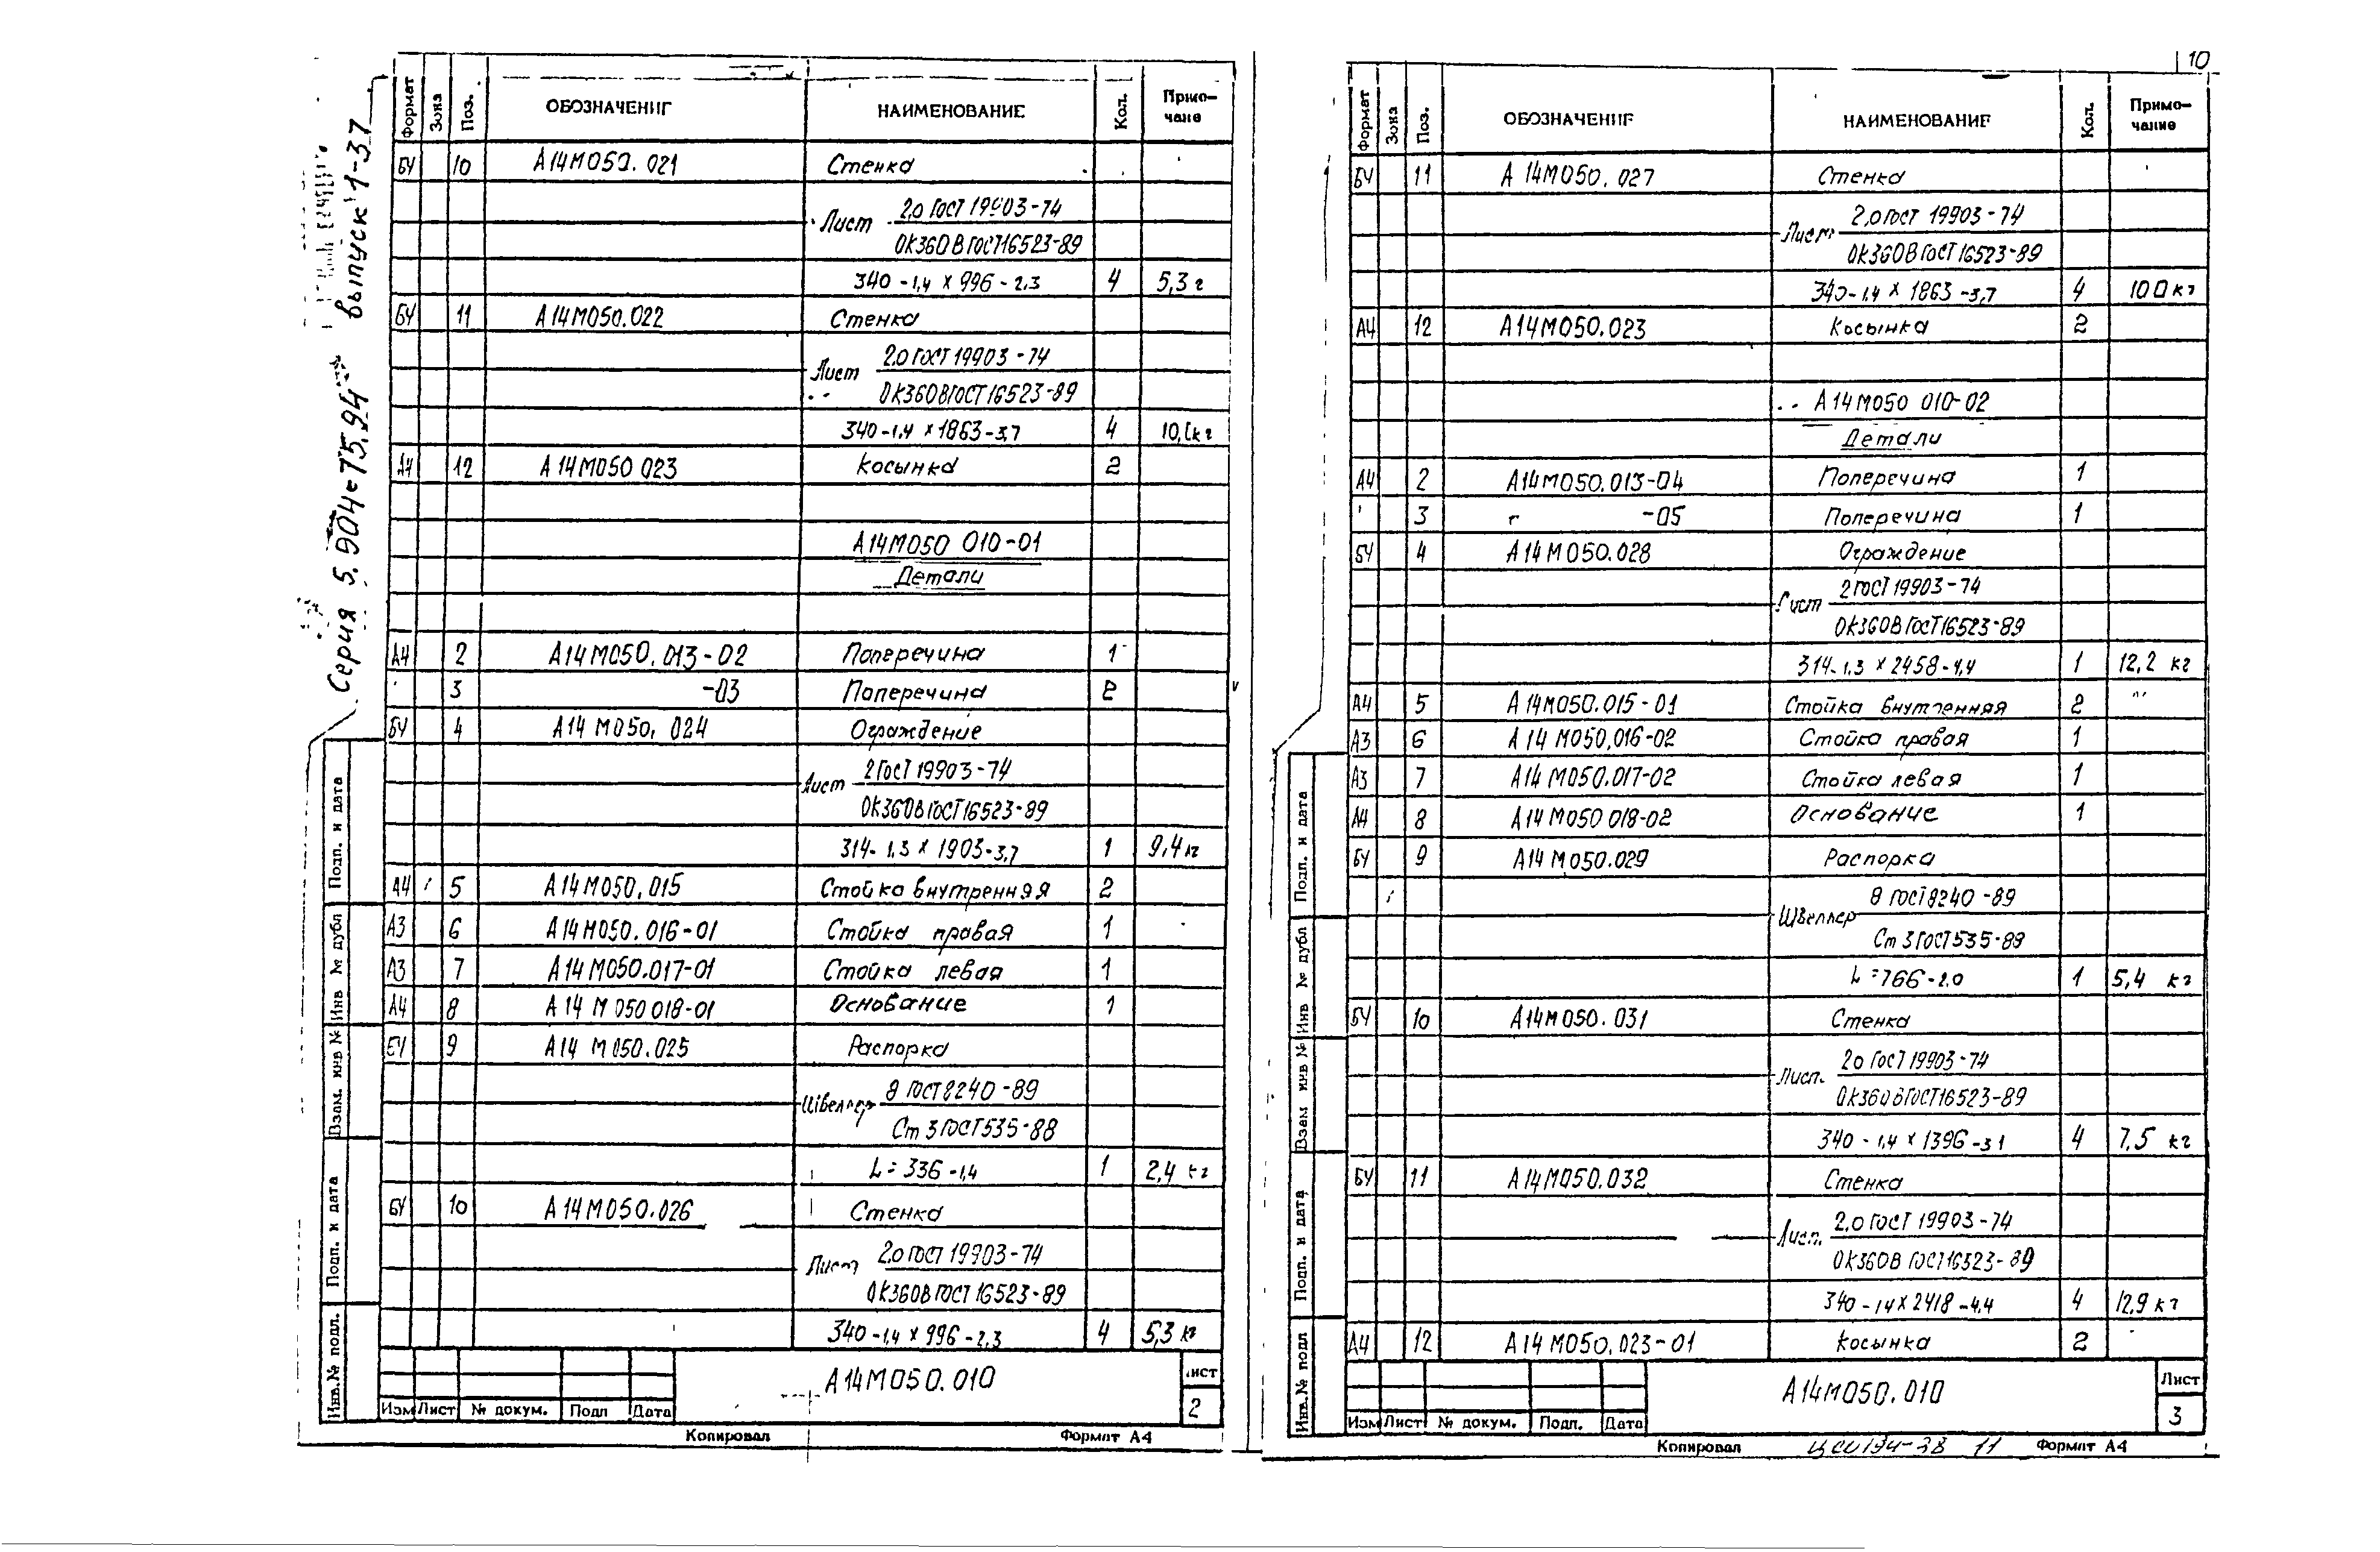 Серия 5.904-75.94 выпуск 1-37
Формат Зона Поз. ОБОЗНАЧЕНИЕ НАИМЕНОВАНИЕ Кол. Приме-чание
БЧ 10 А14М050.021 Стенка
Лист 2,0 ГОСТ 19903-74
ОК360В ГОСТ 16523-89
340-1,4 х 996-2,3 4 5,3 г
БЧ 11 А14М050.022 Стенка
Лист 2,0 ГОСТ 19903-74
ОК360В ГОСТ 16523-89
340-1,4 х 1863-3,7 4 кг
А4 12 А14М050 023 Косынка 2
А14М050 010-01
Детали
А4 2 А14М050.013-02 Поперечина 1
3 -03 Поперечина 2
БЧ 4 А14М050.024 Ограждение
Лист 2 ГОСТ 19903-74
ОК360В ГОСТ 16523-89
314-1,3 х 1903-3,7 1 9,4 кг
А4 5 А14М050.015 Стойка внутренняя 2
А3 6 А14М050.016-01 Стойка правая 1
А3 7 А14М050.017-01 Стойка левая 1
А4 8 А14М050 018-01 Основание 1
БЧ 9 А14М050.025 Распорка
Швеллер 8 ГОСТ 8240-89
Ст 3 ГОСТ 535-88
L=336-1,4 1 2,4 кг
БЧ 10 А14М050.026 Стенка
Лист 2,0 ГОСТ 19903-74
ОК360В ГОСТ 16523-89
340-1,4 х 996-2,3 4 5,3 кг
Подп. и дата
Инв № дубл
Взам. инв №
Подп. и дата
Инв.№ подл.
Изм Лист № докум. Подп Дата
А14М050.010
Лист
2
Копировал Формат А4
10
Формат Зона Поз. ОБОЗНАЧЕНИЕ НАИМЕНОВАНИЕ Кол. Приме-чание
БЧ 11 А14М050.027 Стенка
Лист 2,0 ГОСТ 19903-74
ОК360В ГОСТ 16523-89
340-1,4 х 1863-3,7 4 100 кг
А4 12 А14М050.023 Косынка 2
А14М050 010-02
Детали
А4 2 А14М050.013-04 Поперечина 1
3 -05 Поперечина 1
БЧ 4 А14М050.028 Ограждение
Лист 2 ГОСТ 19903-74
ОК360В ГОСТ 16523-89
314-1,3 х 2458-4,4 1 12,2 кг
А4 5 А14М050.015-01 Стойка внутренняя 2
А3 6 А14М050.016-02 Стойка правая 1
А3 7 А14М050.017-02 Стойка левая 1
А4 8 А14М050 018-02 Основание 1
БЧ 9 А14М050.029 Распорка
Швеллер 8 ГОСТ 8240-89
Ст 3 ГОСТ 535-89
L=766-2,0 1 5,4 кг
БЧ 10 А14М050.031 Стенка
Лист 2,0 ГОСТ 19903-74
ОК360В ГОСТ 16523-89
340-1,4 х 1396-3,1 4 7,5 кг
БЧ 11 А14М050.032 Стенка
Лист 2,0 ГОСТ 19903-74
ОК360В ГОСТ 16523-89
340-1,4 х 2418-4,4 4 12,9 кг
А4 12 А14М050.023-01 Косынка 2
Подп. и дата
Инв № дубл
Взам инв №
Подп. и дата
Инв.№ подл
Изм Лист № докум. Подп. Дата
А14М050.010
Лист
3
Копировал 11 Формат А4